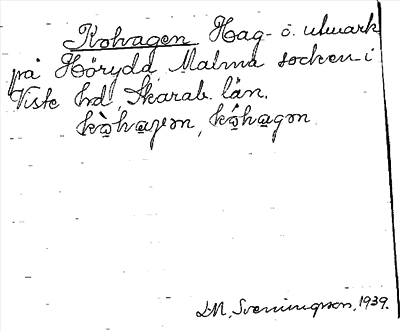 Kohagen Hag- o. utmark
på Hörydd, Malma socken i
Viste hd, Skarab. län.
kò̱ha̱gən, kó̱ha̱gən
S.M. Svenningsson, 1939.